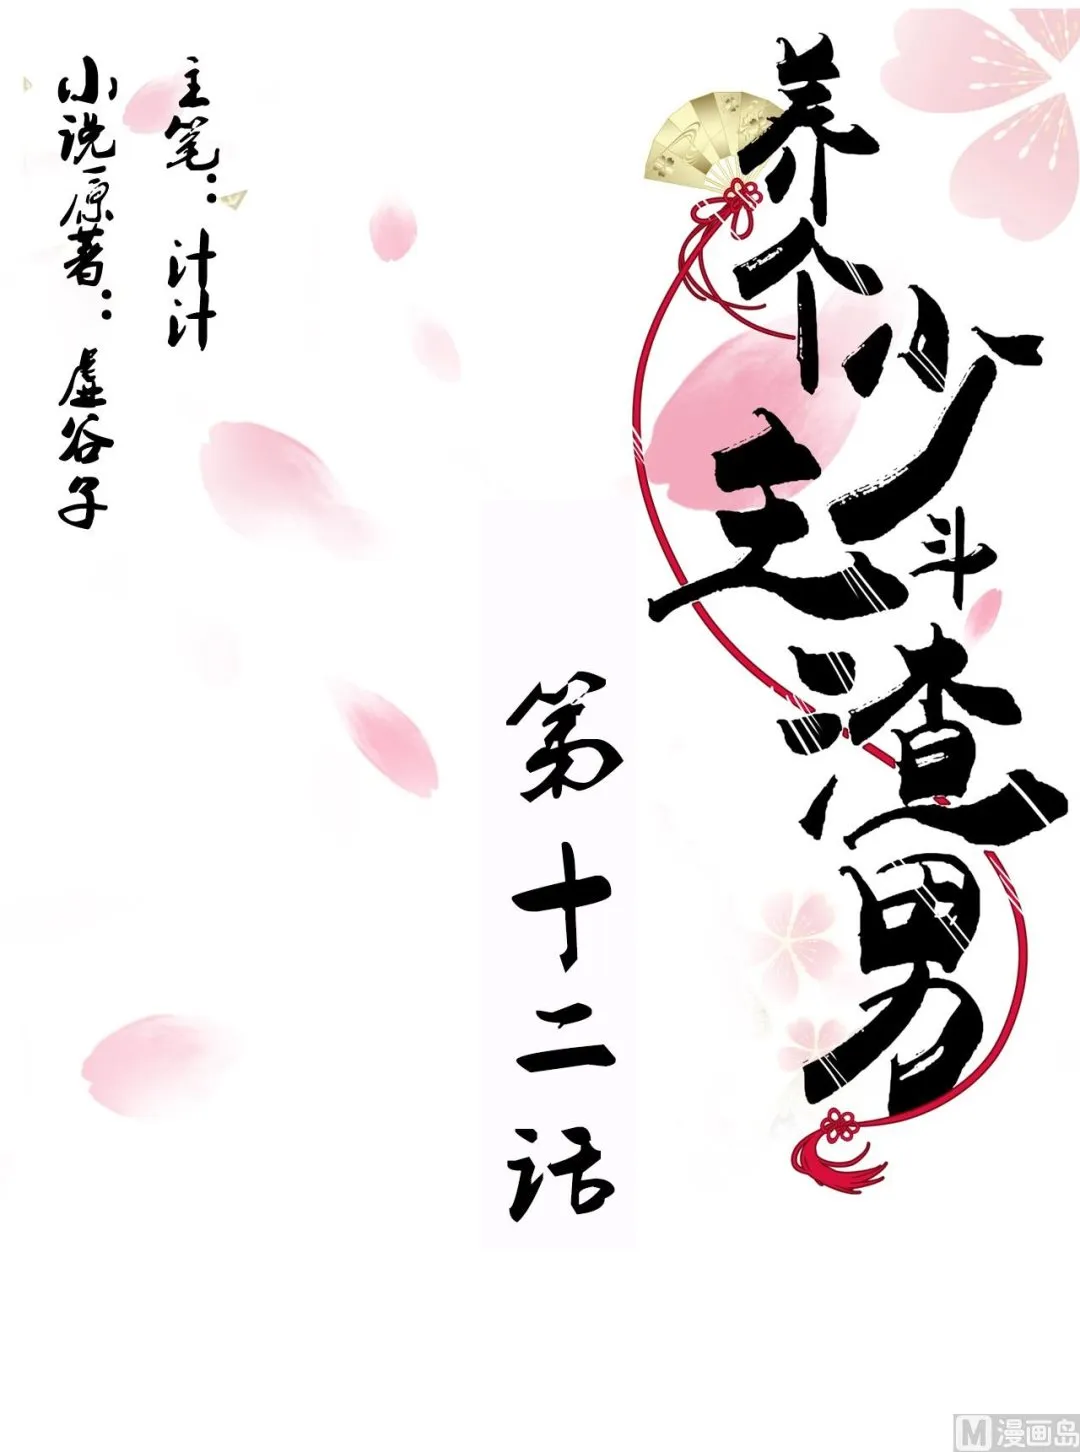 养个少主斗渣男
第十二话
主笔：计计
小说原著：虚谷子
M漫画岛